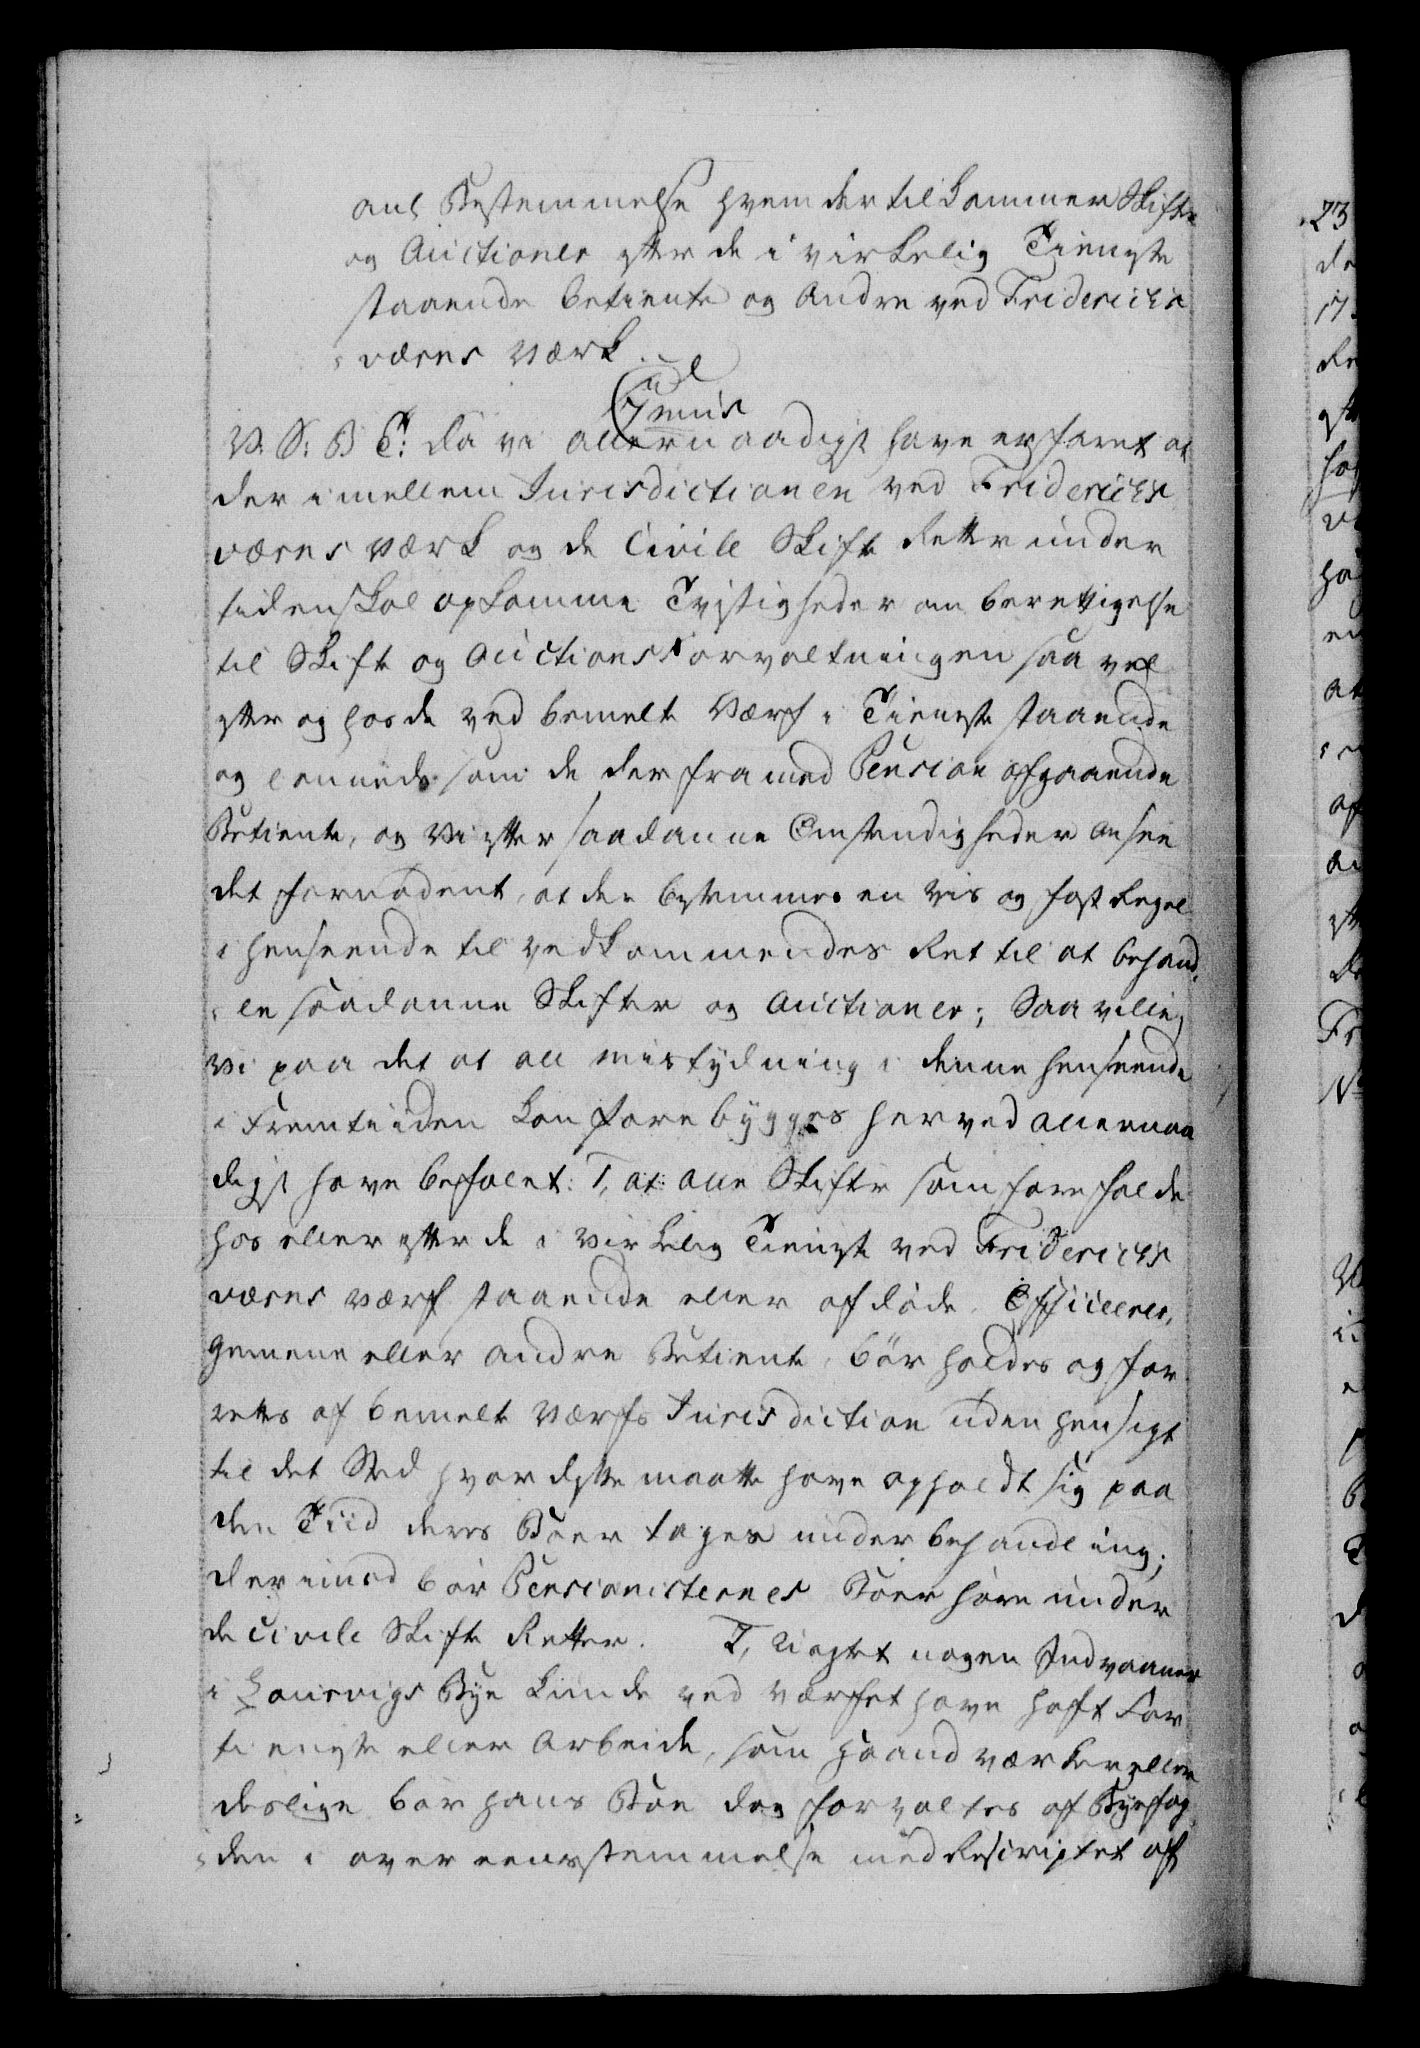 anl. Bestemmelse hvem der tilkommer Skifte
og Auctioner efter de i virkelig Tieneste
staaende betiente og Andre ved Friderichs
værns Værk.
V. S. B T: Da vi allernaadigst have erfaret at
der imellem Jurisdictionen ved Friderichs
værns Værk og de Civile Skifte Retter under
tiden skal opkomme Tvistigheder om berettigelse
til Skifte og Auctions Forvaltningen saa vel
efter og hos de ved bemelte Værf i Tieneste staaende
og lønnede som de derfra med Pension afgaaende
Betiente, og Vi efter saadanne Omstendigheder ansee
det fornødent, at der bestemmes en vis og fast Regel
i henseende til vedkommendes Ret til at behand
le saadanne Skifter og Auctioner; Saa ville
Vi paa det at all mistydning i denne henseende
i Fremtiiden kan forebygges herved allernaa
digst have befalet: 1, at alle Skifte som forefalde
hos eller efter de i virkelig Tieneste ved Friderichs
værns værf staaende eller afdøde Officerer,
gemene eller andre Betiente, bør holdes og for
rettes af bemelte Værfs Jurisdiction uden hensigt
til det Sted hvor disse maatte have opholdt sig paa
den Tiid deres Boer tages under behandling;
derimod bør Pensionisternes Boer høre under
de civile Skifte Retter. 2, Uagtet nogen Indvaaner
i Laurvigs Bye kunde ved værfet have haft For
tieneste eller Arbeide, som Haandværker eller
deslige bør hans Boe dog forvaltes af Byefog
den i overeensstemmelse med Rescriptet af